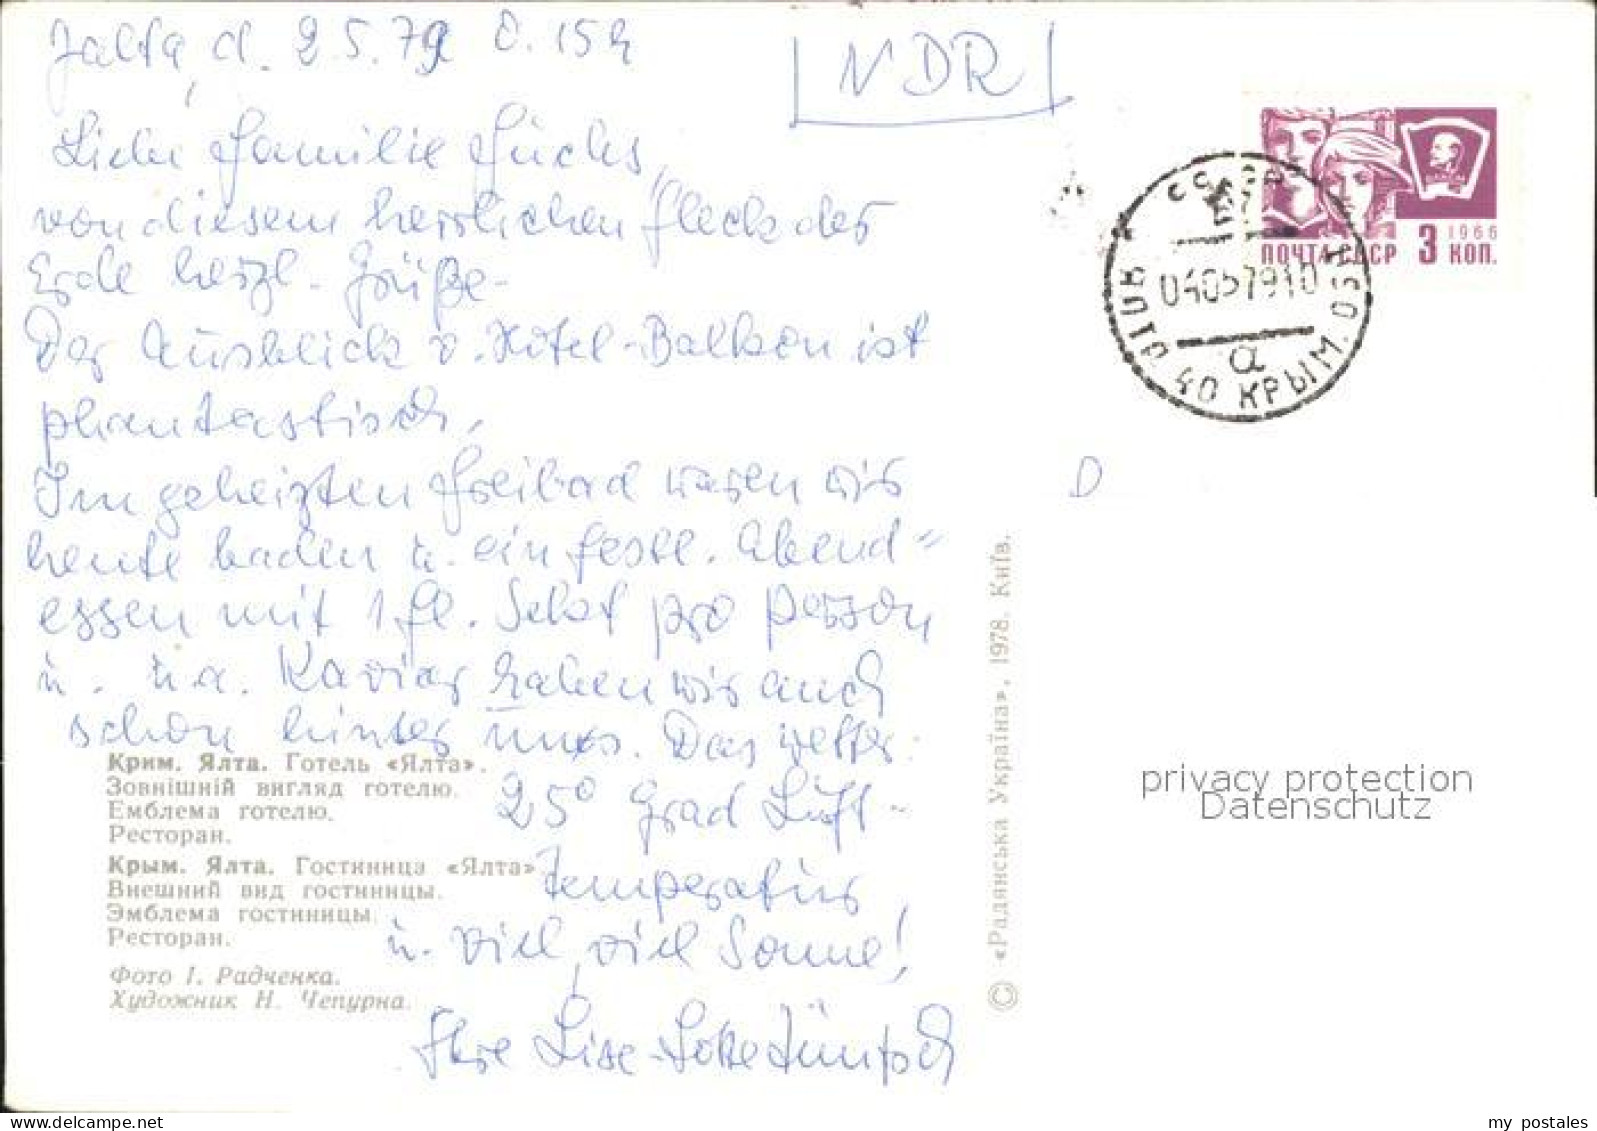 Jalta, d. 2.5.79 15h
NDR
Liebe Familie Fuchs,
von diesem herrlichen Fleck der
Erde herzl. Grüße.
Der Ausblick v. Hotel-Balkon ist
phantastisch,
Im geheizten Freibad waren wir
heute baden u. ein festl. Abend=
essen mit 1 Fl. Sekt pro Person
u. u.a. Kaviar haben wir auch
schon hinter uns. Das Wetter:
25° Grad Luft-
temperatur
u. viel, viel Sonne!
Ihre Lise-Lotte
Крим. Ялта. Готель «Ялта».
Зовнішній вигляд готелю.
Емблема готелю.
Ресторан.
Крым. Ялта. Гостиница «Ялта».
Внешний вид гостиницы.
Эмблема гостиницы.
Ресторан.
Фото І. Радченка.
Художник Н. Чепурна.
© «Радянська Україна», 1978. Київ.
1966
ПОЧТА СССР 3 КОП.
СССР
04057910
а
40 КРЫМ. ОБЛ
D
privacy protection
Datenschutz
my postales